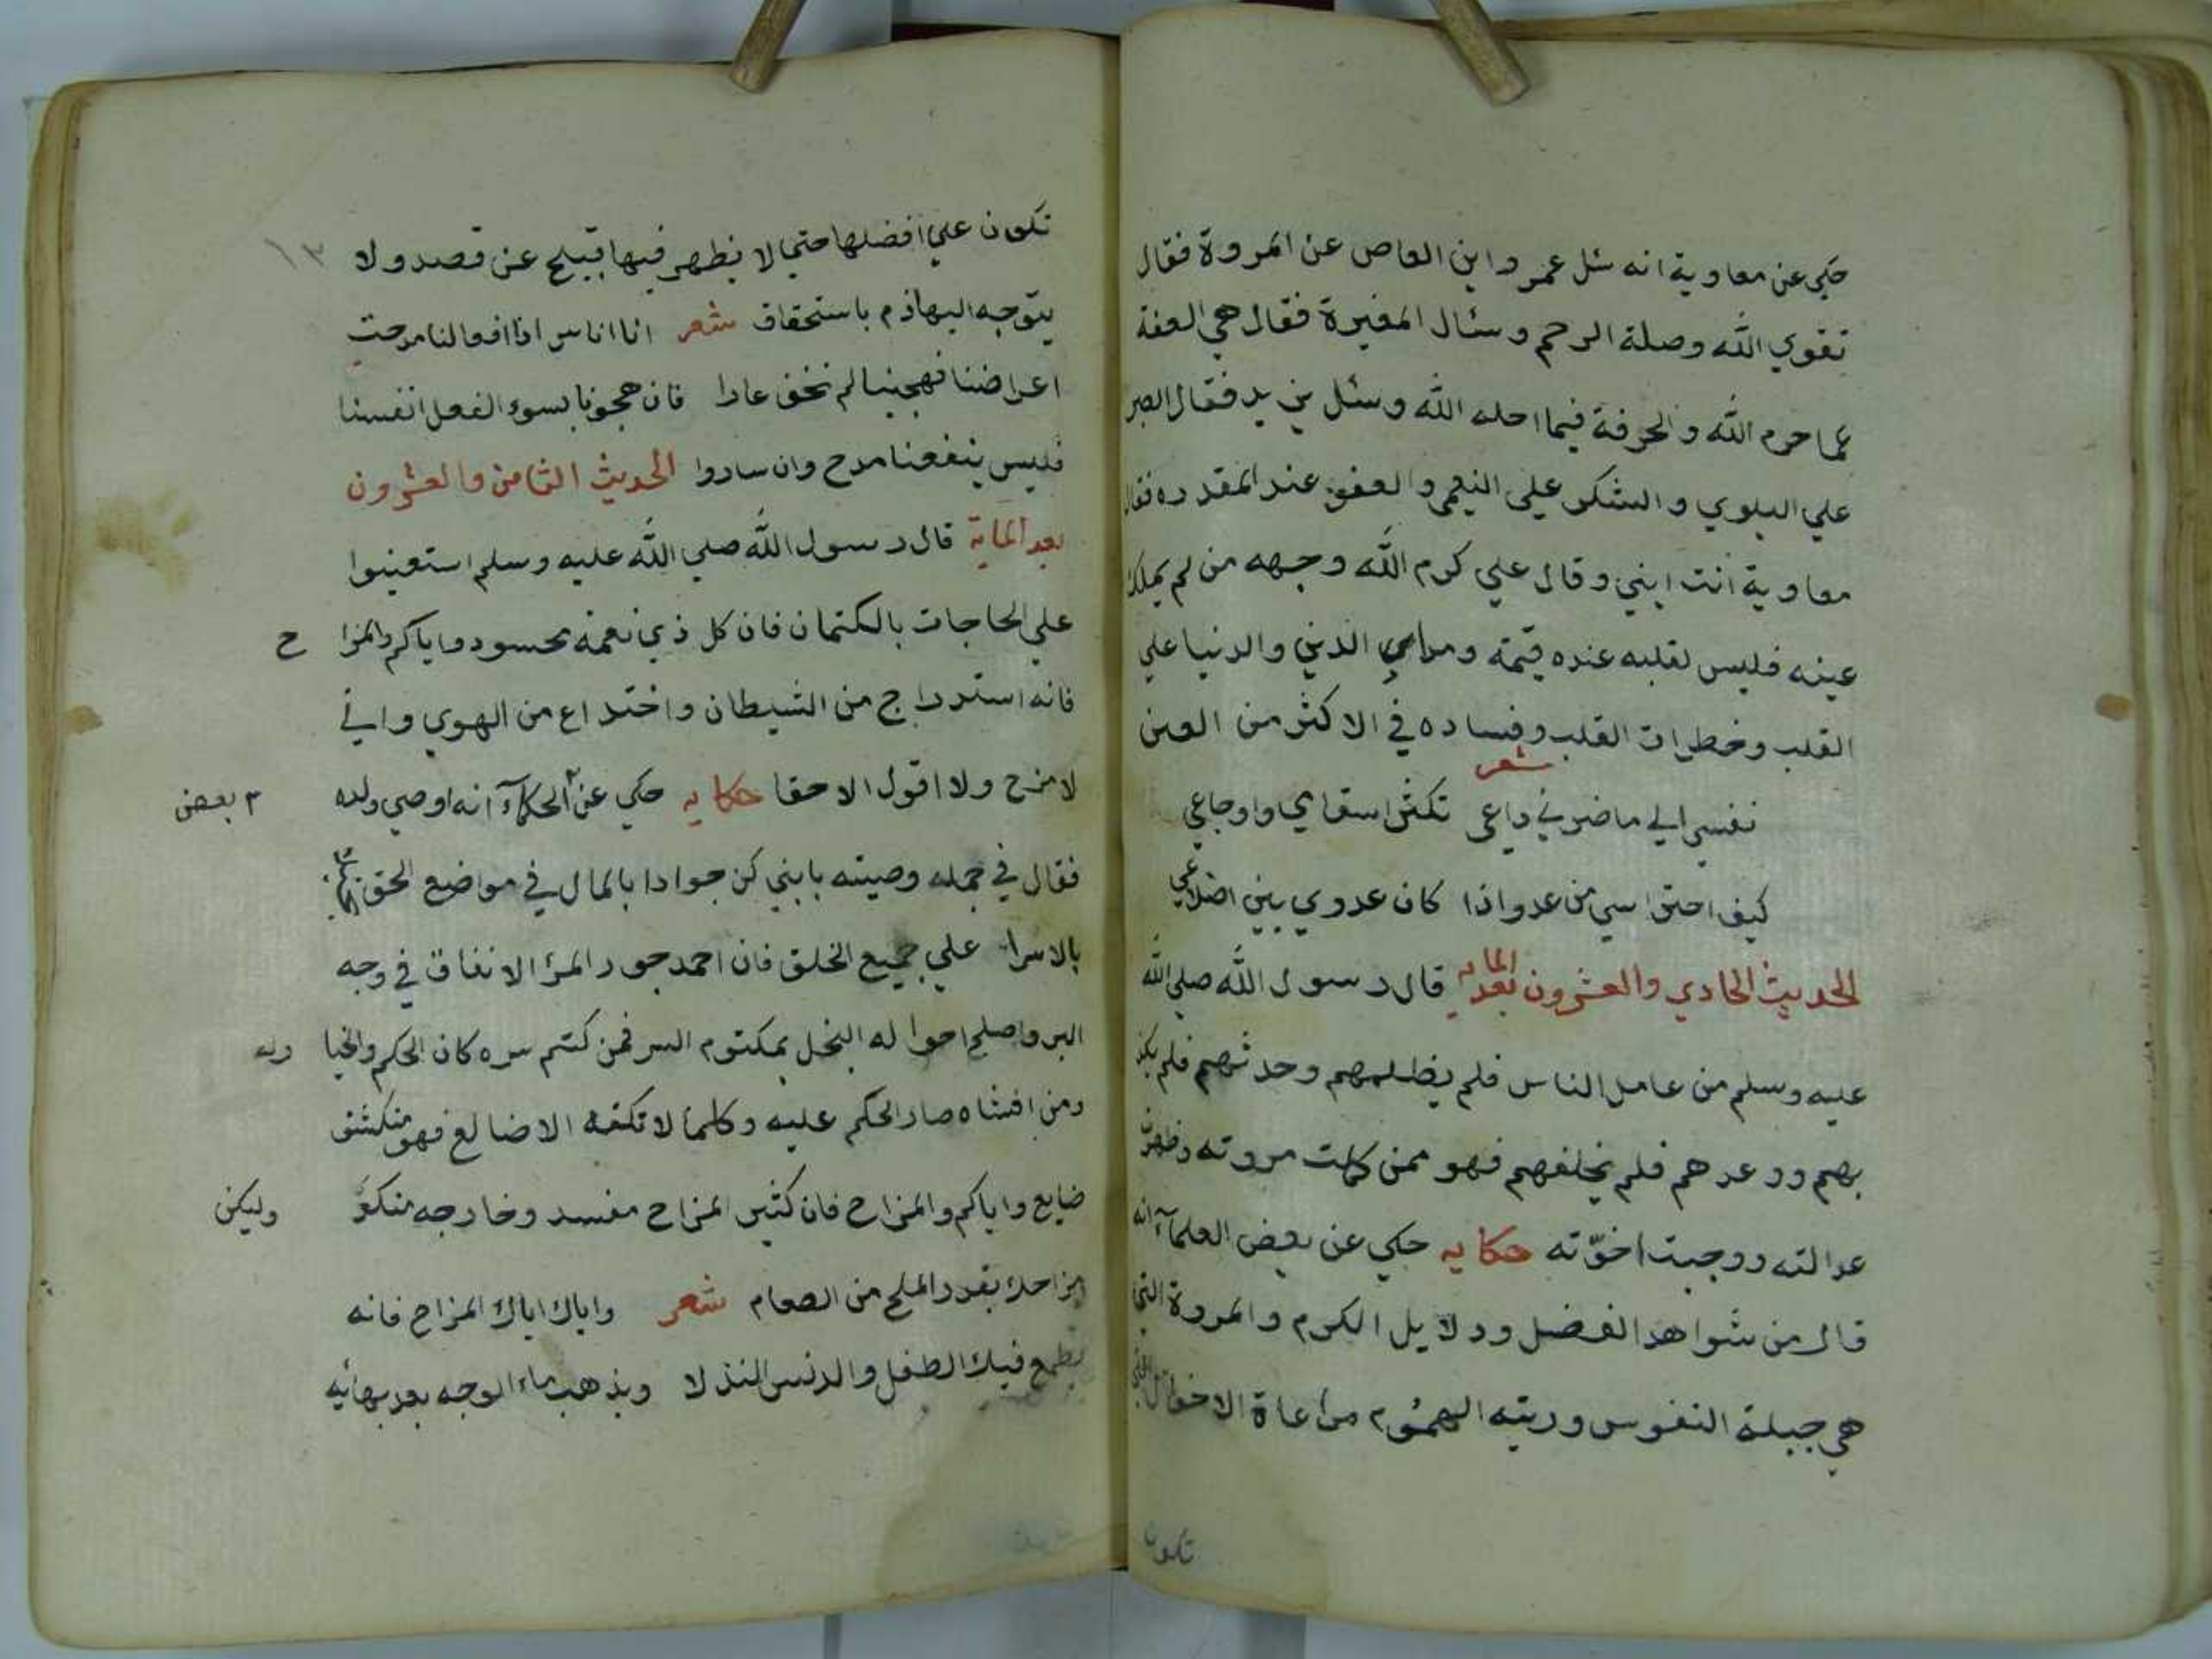 حكي عن معاوية انه سئل عمر وابن العاص عن المروة فقال
تقوي الله وصلة الرحم وسئال المغيرة فقال هي العفة
عما حرم الله والحرفة فيما احله الله وسئل يزيد فقال الصبر
علي البلوي والشكر علي النعمي والعفو عند المقدره فقال
معاوية انت ابني وقال علي كرم الله وجهه من لم يملك
عينه فليس لقلبه عنده قيمة ومراعي الدين والدنيا علي
القلب وخطرات القلب وفساده في الاكثر من العين
شعر
نفسي الي ما ضرني داعي تكثر اسقامي واوجاعي
كيف احتراسي من عدو اذا كان عدوي بين اضلاعي
الحديث الحادي والعشرون بعد المايه قال رسول الله صلي الله
عليه وسلم من عامل الناس فلم يظلمهم وحدثهم فلم يكذ
بهم ووعدهم فلم يخلفهم فهو ممن كملت مروته وظهرت
عدالته ووجبت اخوّته حكايه حكي عن بعض العلمآء انه
قال من شواهد الفضل ودلايل الكرم والمروة التي
هي جبلة النفوس ورتيه الهموم مراعاة الاحوال
تكون
تكون علي افضلها حتي لا يظهر فيها قبيح عن قصد ولا
١٣
يتوجه اليها ذم باستحقاق شعر انا اناس اذا افعالنا مدحت
اعراضنا فهجينا لم نخف عارا فان هجونا بسوء الفعل انفسنا
فليس ينفعنا مدح وان ساروا الحديث الثامن والعشرون
بعد الماية قال رسول الله صلي الله عليه وسلم استعينوا
علي الحاجات بالكتمان فان كل ذي نعمة محسود واياكم والمزا ح
فانه استدراج من الشيطان واختداع من الهوي واني
لامزح ولا اقول الا حقا حكايه حكي عن الحكمآء انه اوصي ولده
٣ بعض
فقال في جمله وصيته يابني كن جوادا بالمال في مواضع الحق
بالاسرار علي جميع الخلق فان احمد جود المرء الانفاق في وجه
البر واصلح احواله البخل بمكتوم السر فمن كتم سره كان الحكم والخيا رله
ومن افشاه صار الحكم عليه وكلما لا تكنفه الاضالع فهو منكشف
ضايع واياكم والمزاح فان كثير المزاح مفسد وخارجه منكر وليكن
مزاحك بقدر الملح من الطعام شعر واياك اياك المزاح فانه
يطمع فيك الطفل والدنس النذلا ويذهب ماء الوجه بعد بهائيه